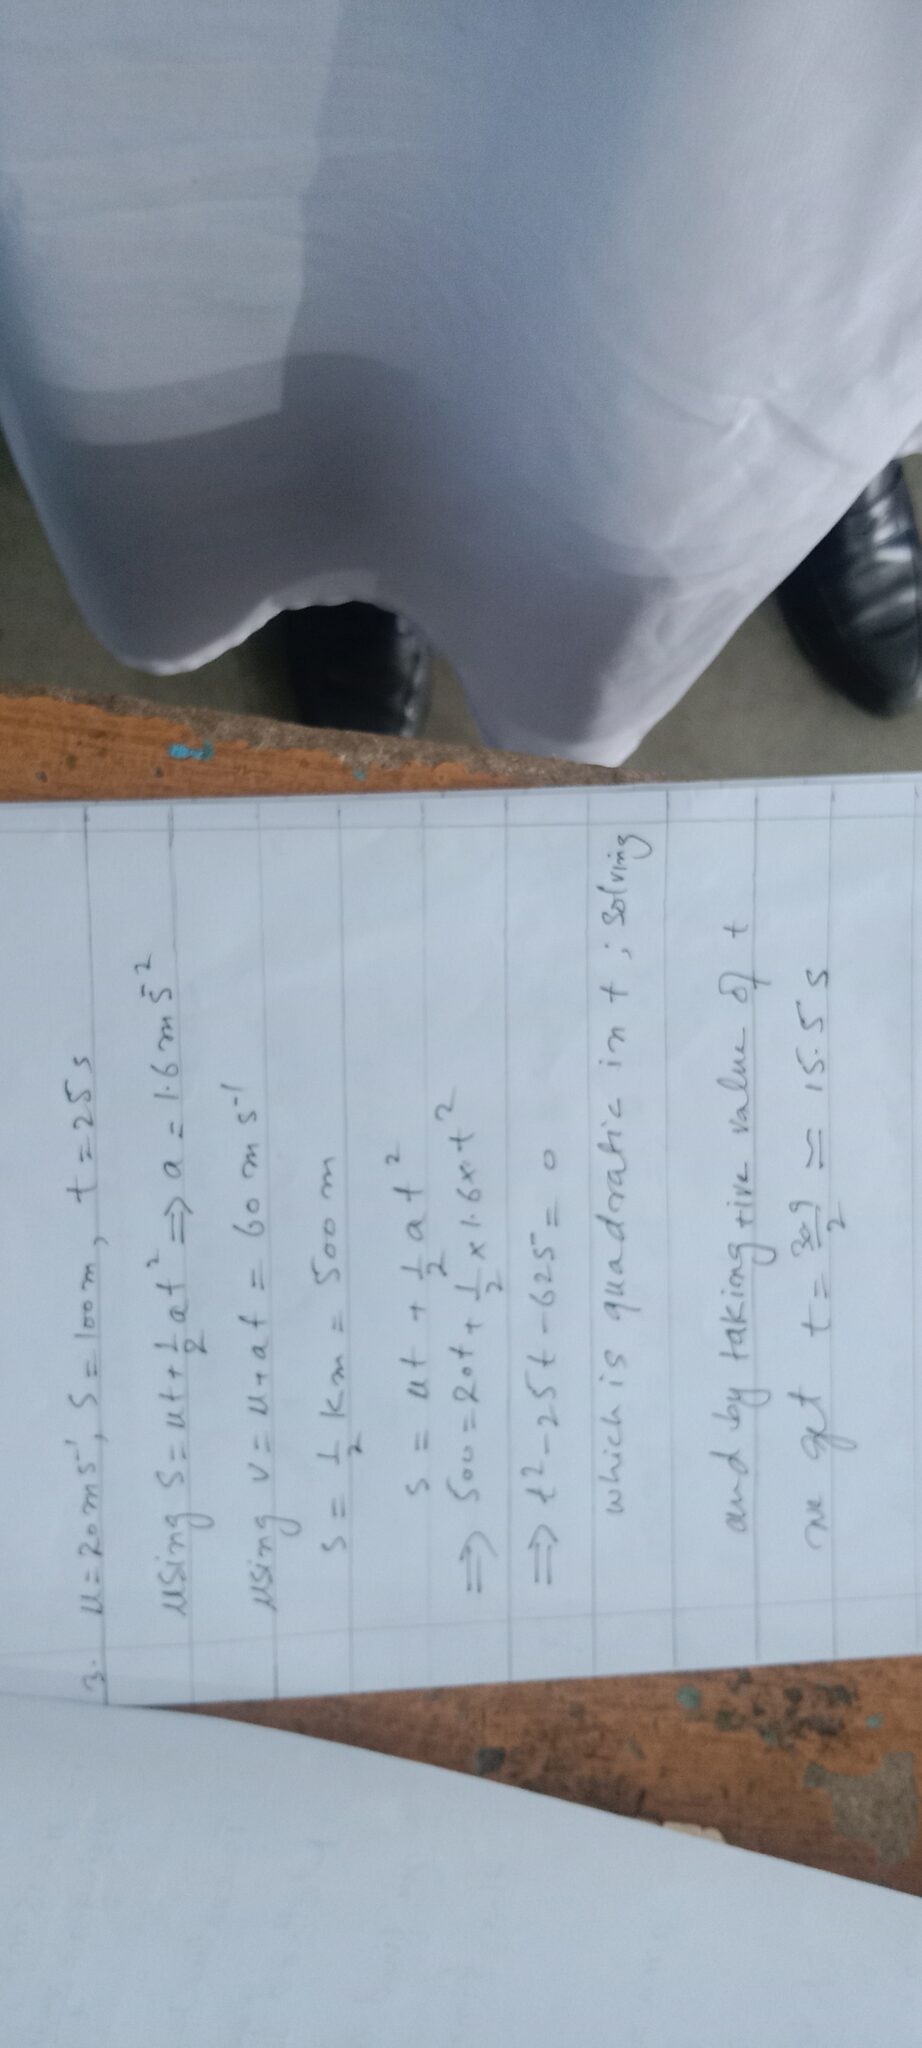 3. u = 20 ms⁻¹, s = 100 m, t = 25 s
using s = ut + 1/2 at² ⇒ a = 1.6 m s⁻²
using v = u + at = 60 m s⁻¹
s = 1/2 km = 500 m
s = ut + 1/2 at²
⇒ 500 = 20t + 1/2 × 1.6 × t²
⇒ t² - 25t - 625 = 0
which is quadratic in t ; solving
and by taking +ive value of t
we get t = 30.9/2 ≃ 15.5 s